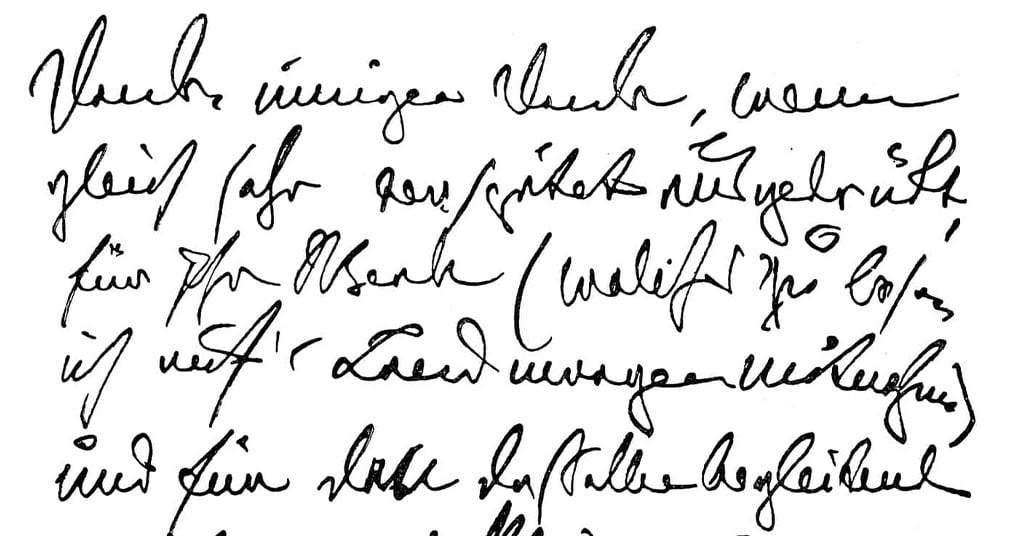 Dank, innigen Dank, wenn
gleich sehr verspätet ausgedrückt,
für Ihr Werk (welches zu lesen
ich auf's Land
und für das dasselbe begleitende